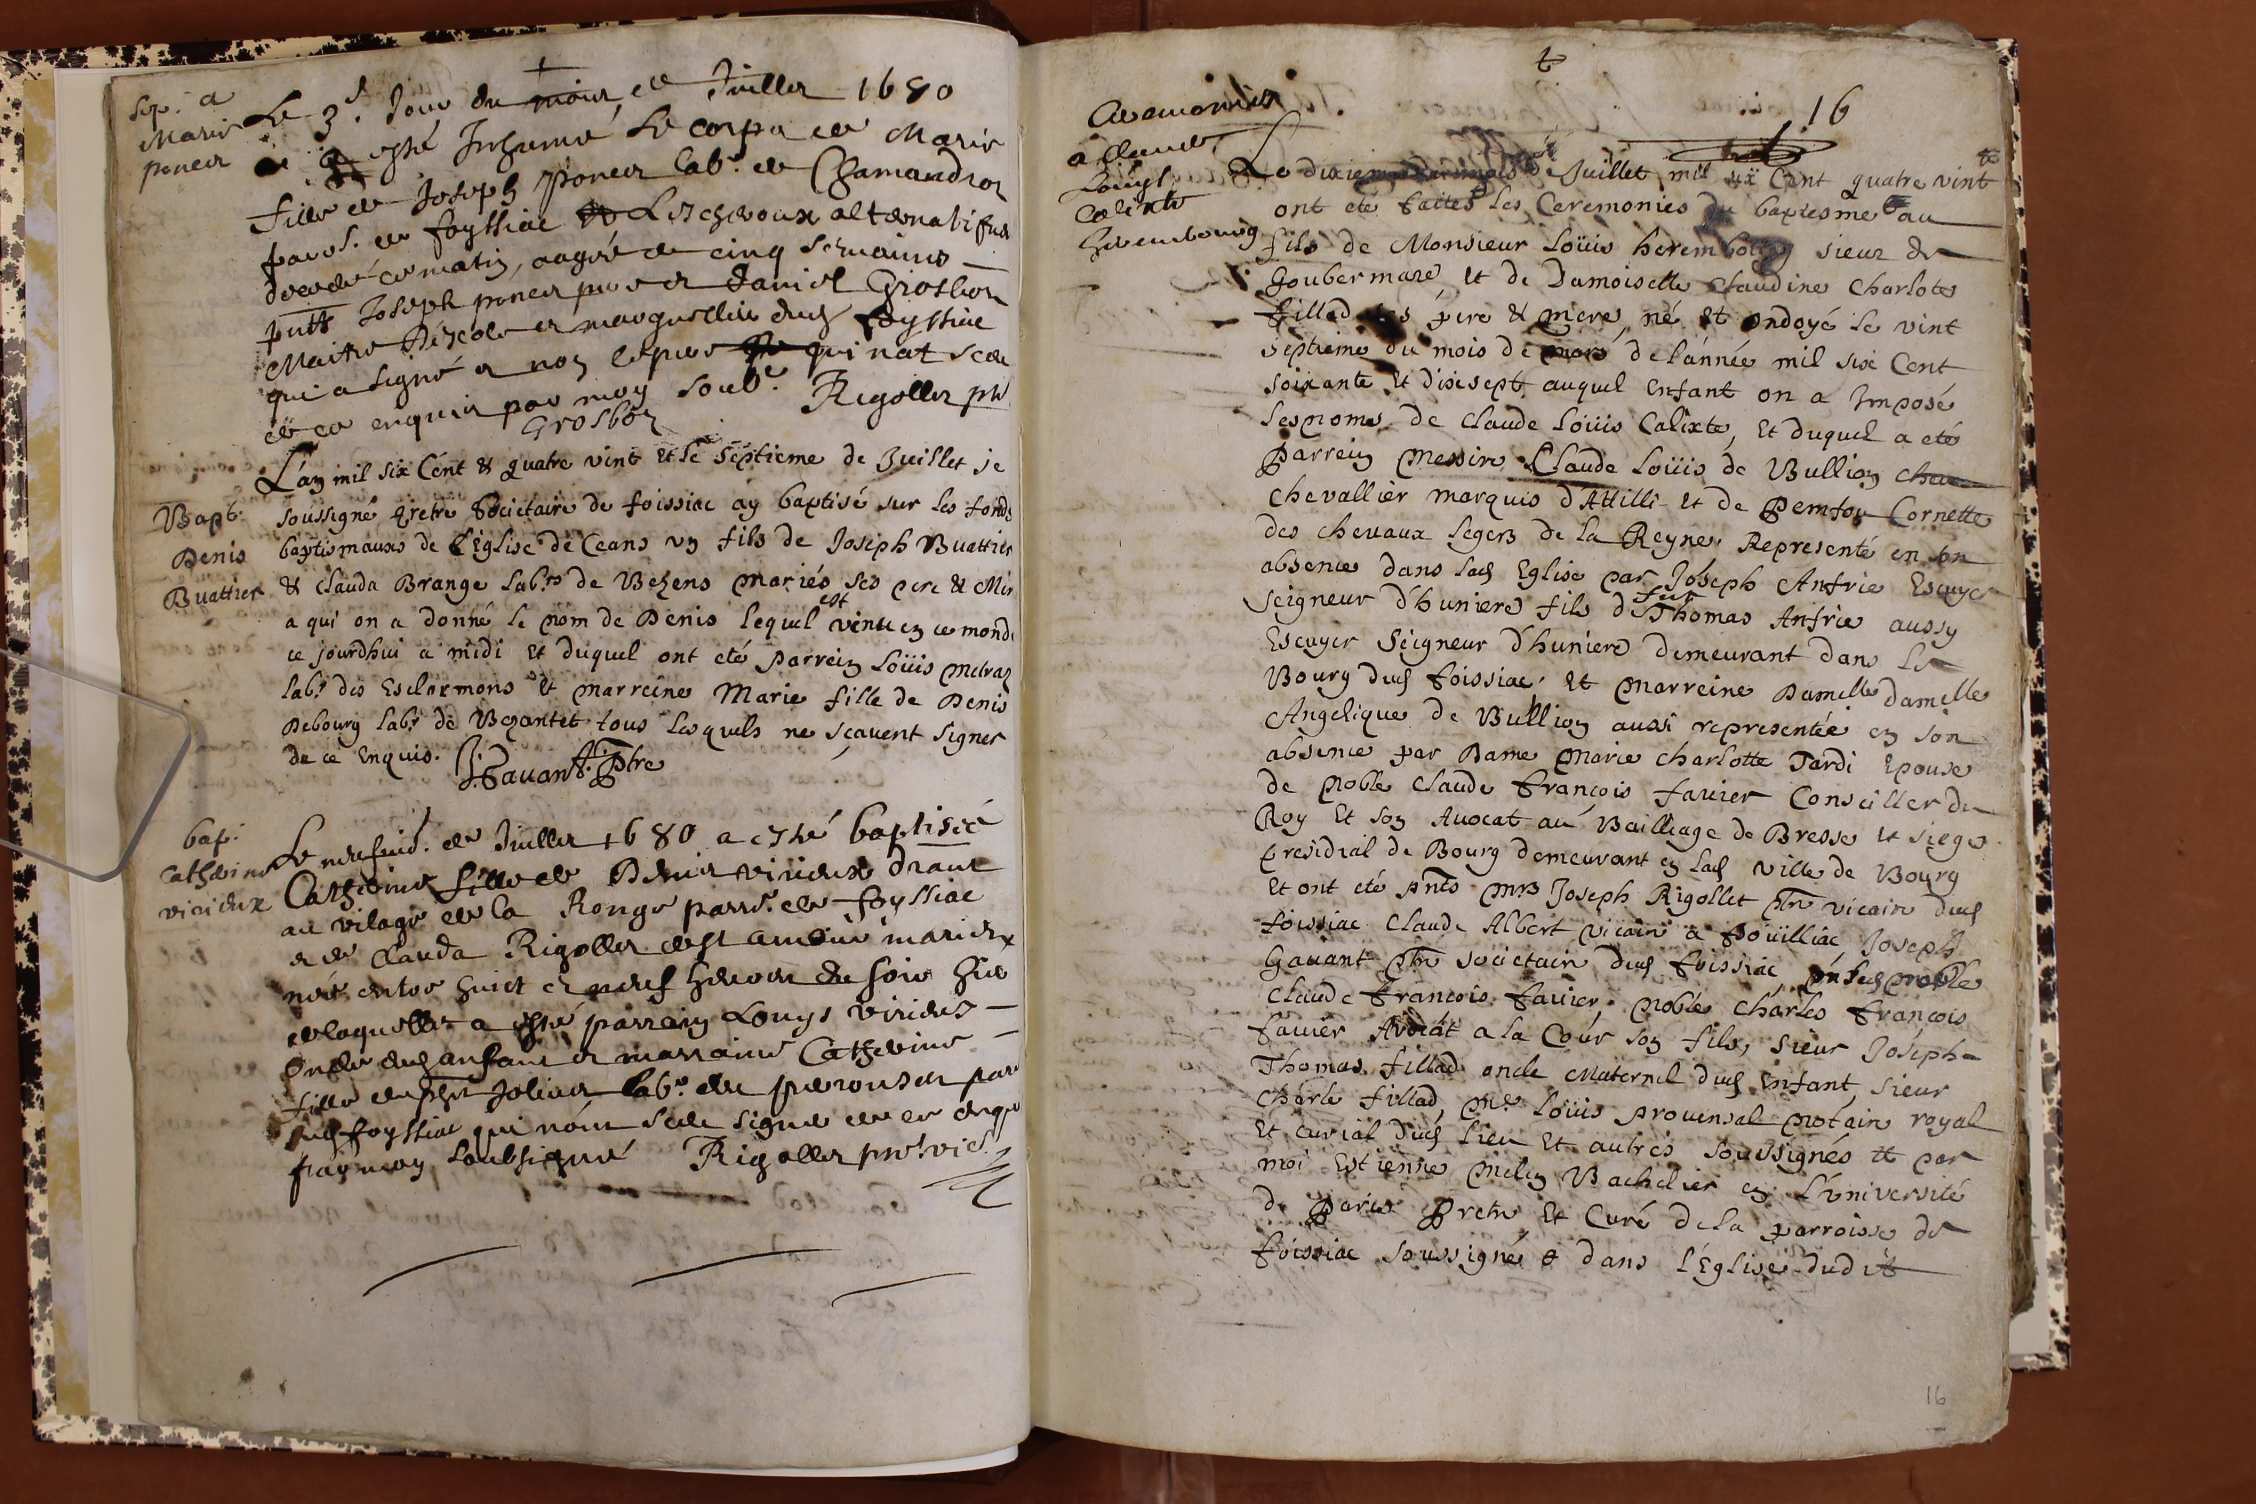 Sep. a
Marie
poncet
Le 3e. Jour du mois de Juillet 1680
a esté Inhumé Le corps de Marie
fille de Joseph poncet lab.r de Chamandrot
parois. de foyssiac Leschevoux alternatifvs
decedé ce matin, aagée de cinq semaines
pntz Joseph poncet pere et daniel Grosbon
Maitre d'Escole et marguellier dud foyssiac
qui a signé et non le pere qui nat sceu
de ce enquis par moy soub.é Rigollet pbr
Grosbon
L'an mil six Cént & quatre vint Et le septieme de Juillet je
Bapt.
Denis
Buattier
soussigné Prêtre Societaire de foissiac ay baptisé sur les fonds
baptismaux de l'Eglise de Ceans un fils de Joseph Buattier
& Clauda Brange lab.rs de Bezens Mariés ses pere & Mer
a qui on a donné le nom de Denis lequel est venu en ce monde
ce jourdhui a midi Et duquel ont eté Parrein Loüis Metraz
lab.r des Esclormons Et Marreine Marie fille de Denis
Debourg lab.r de Bezantet tous lesquels ne sçavent signer
de ce Enquis. J. Gavant Ptre
bap.
Catherine
virieux
Le neufvie. de Juillet 1680 a esté baptiséé
Catherine fille de Denis virieux dmt
au vilage de la Ronge parrs. de foyssiac
et de Clauda Rigollet sa feme mariez
neé entre huict et neuf heures du soir hier
de laquelle a esté parrain Louys virieux
Oncle dud enfant et marraine Catherine
fille de phet Jolivet lab.r du perouset parr
dud foyssiac qui n'ont sceu signer de ce enqs
par moy soubsigné Rigollet pre. vic.
16
Ceremonies
a Claude
Louys
Calixte
herembourg
Le dixieme Juillet mil six Cent quatre vint
ont eté faites les Ceremonies du baptesme au
fils de Monsieur Loüis herembourg sieur de
Goubermare Et de Damoiselle Claudine Charlote
fillod ses pere & mere, né Et ondoyé le vint
septieme du mois de mars de l'année mil six Cent
soixante Et dixsept, auquel Enfant on a Imposé
les noms de Claude Loüis Calixte, Et duquel a eté
Parrein Messire Claude Loüis de Bullion
Chevallier marquis d'Attilli Et de Pemfou Cornette
des chevaux legers de la Reyne Representé en son
absence dans lad Eglise par Joseph Anfrie Escuyer
seigneur d'huniere fils de feu Thomas Anfrie aussy
Escuyer Seigneur d'huniere demeurant dans le
Bourg dud foissiac, Et Marreine Damelle damelle
Angelique de Bullion aussi representée en son
absence par Dame Marie Charlotte Tardi Epouse
de Noble Claude François favier Conseiller du
Roy Et son Avocat au Bailliage de Bresse Et siege
presidial de Bourg demeurant en lad ville de Bourg
Et ont eté pnts Mrs Joseph Rigollet ptre vicaire dud
foissiac Claude Albert vicaire a Pouilliac Joseph
Gavant Ptre societaire dud foissiac, led noble
Claude François favier, Noble Charles François
favier Avocat a la Cour son fils, sieur Joseph
Thomas fillod oncle Maternel dud Enfant, sieur
Charle fillod, Me Loüis provensal Notaire royal
Et curial dud lieu Et autres soussignés Et par
moi Estienne Melin Bachelier en l'université
de Paris Pretre Et Curé de la parroisse de
foissiac soussigné & dans l'Eglise dudit
16